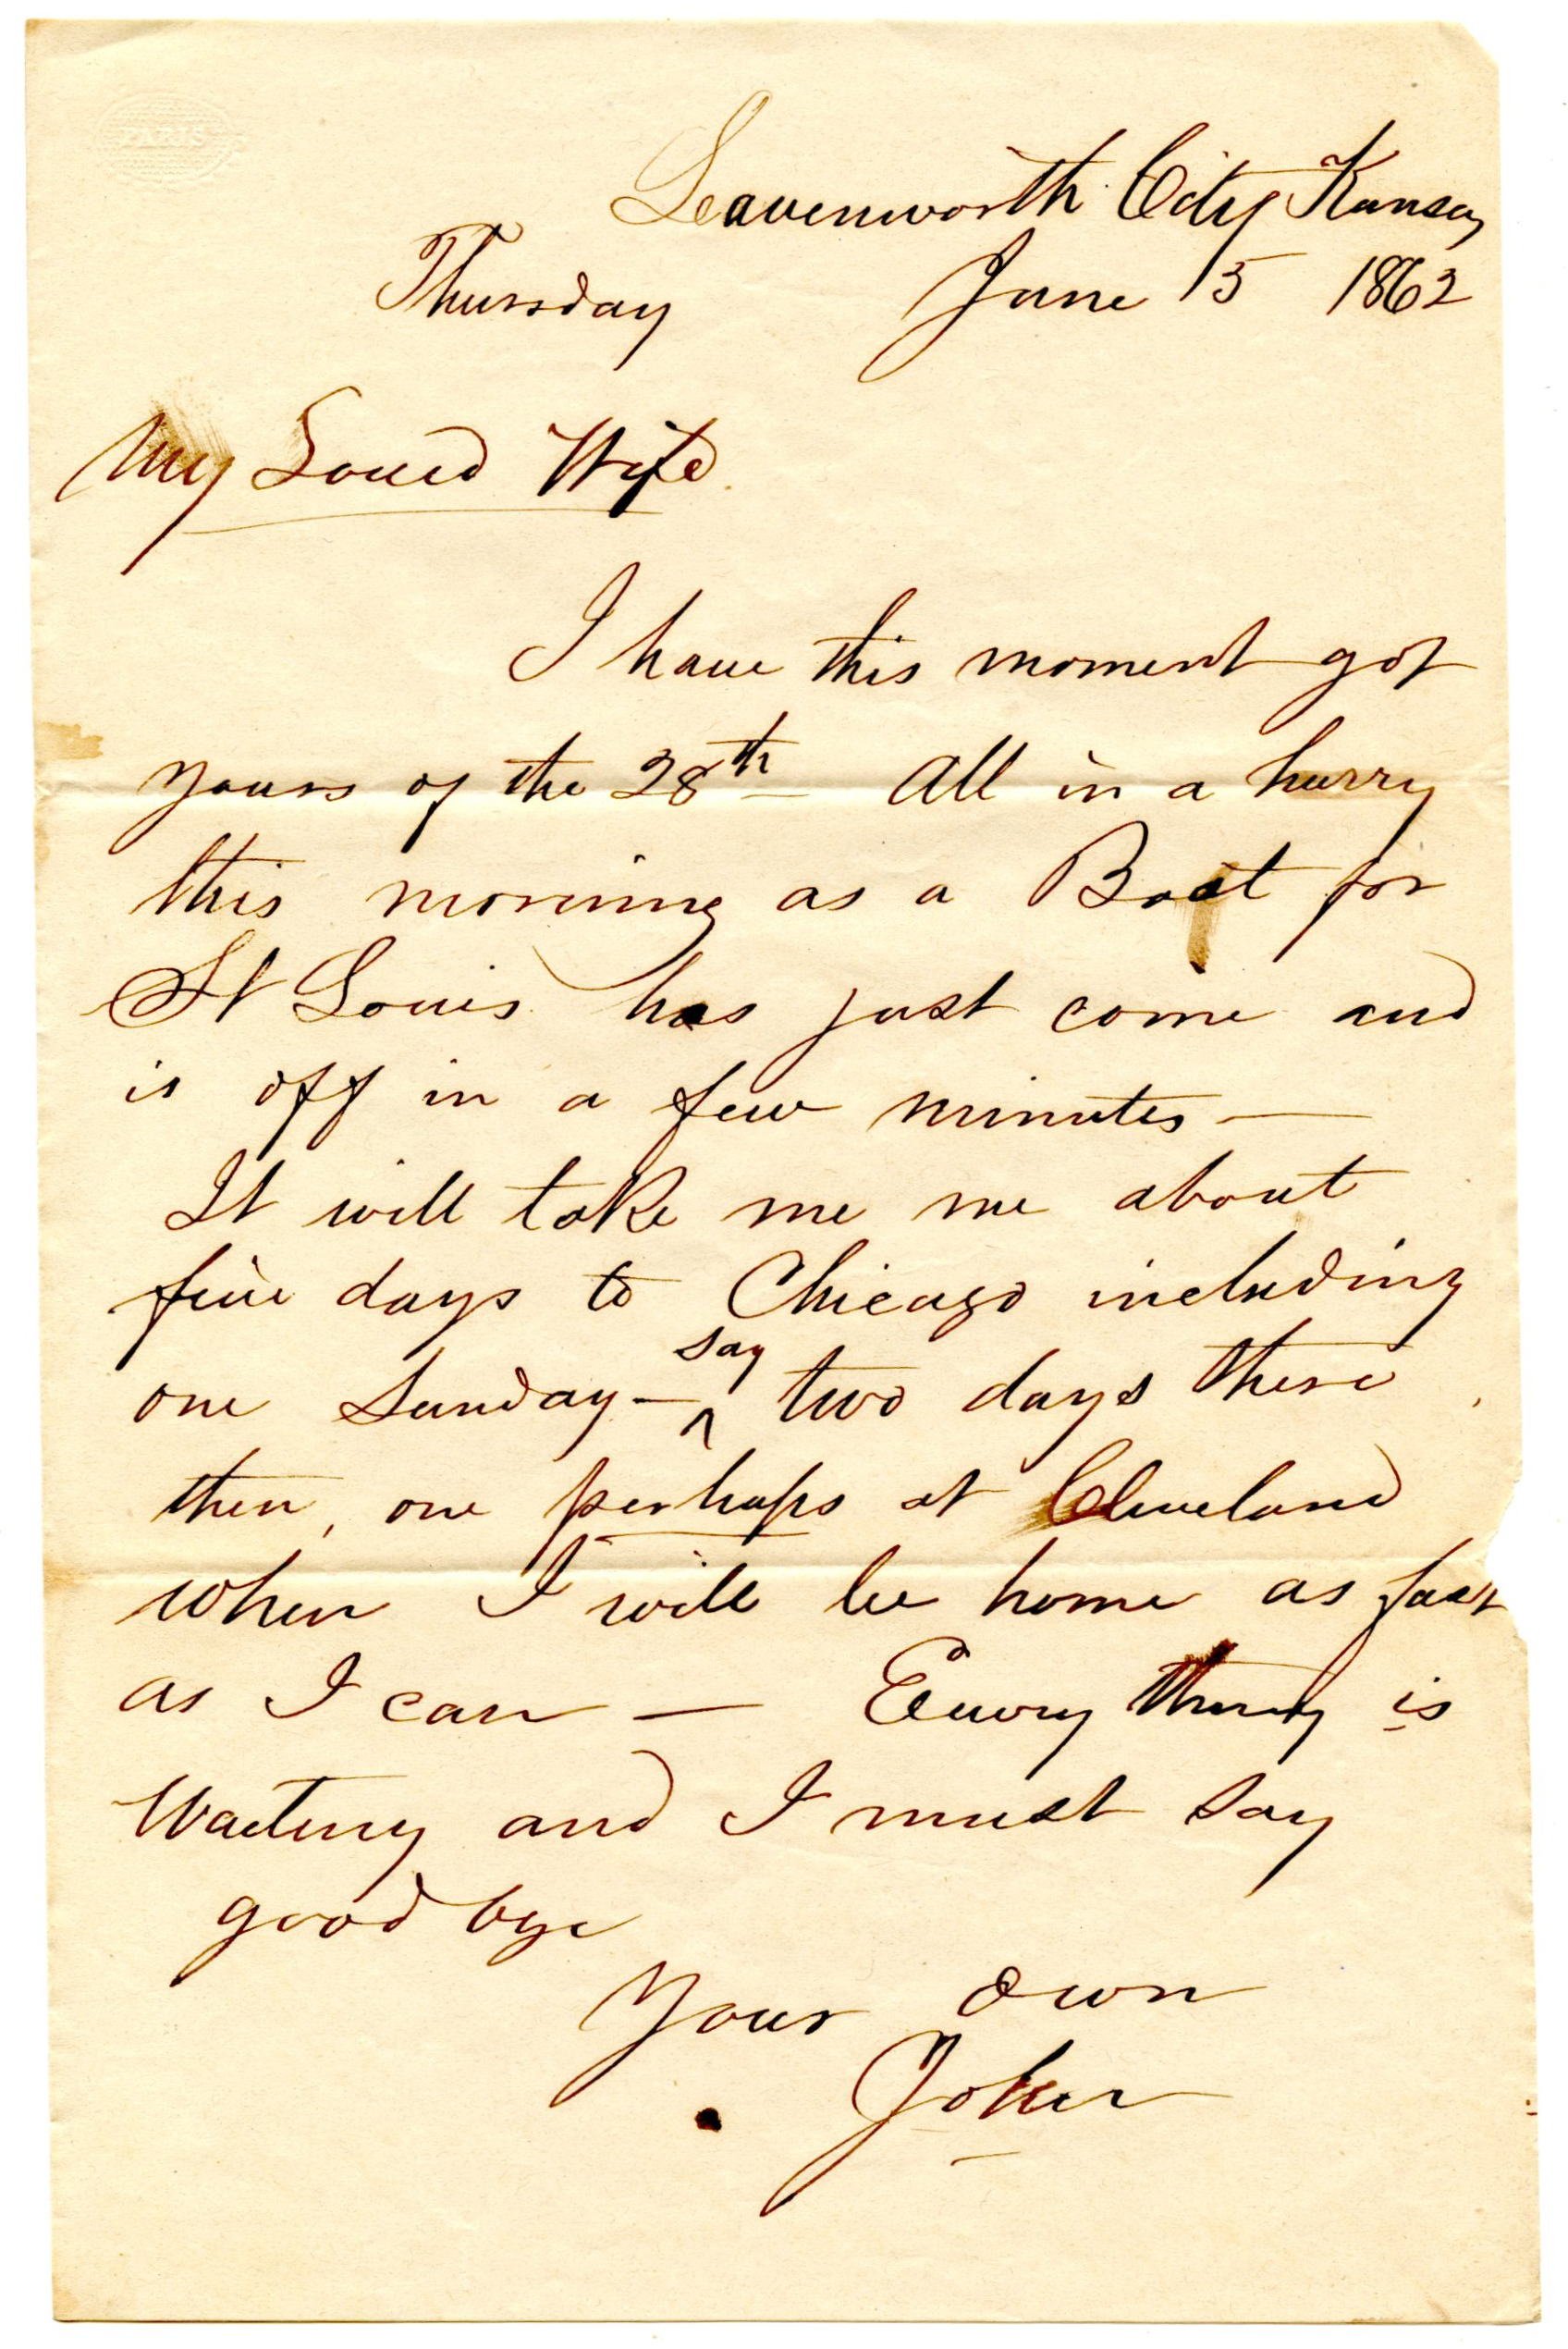 PARIS
Leavenworth City Kansas
Thursday June 5 1862
My Loved Wife.
I have this moment got
yours of the 28th - All in a hurry
this morning as a Boat for
St Louis has just come and
is off in a few minutes -
It will take me me about
five days to Chicago including
one Sunday - say two days there
then, one perhaps at Cleveland
when I will be home as fast
as I can - Every thing is
Waiting and I must say
good bye
Your own
John